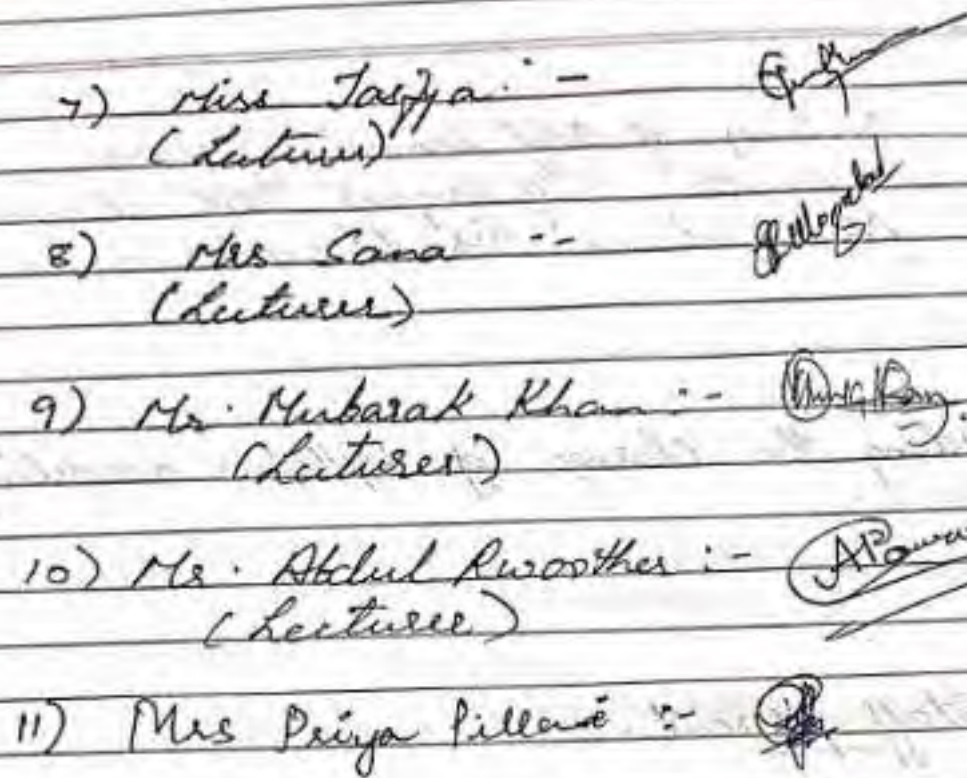 7) Miss Tasfya :-
(Lecturer)
8) Mrs Sana :-
(Lecturer)
9) Mr. Mubarak Khan :-
(Lecturer)
10) Mr. Abdul Rwoother :-
(Lecturer)
11) Mrs Priya Pillai :-